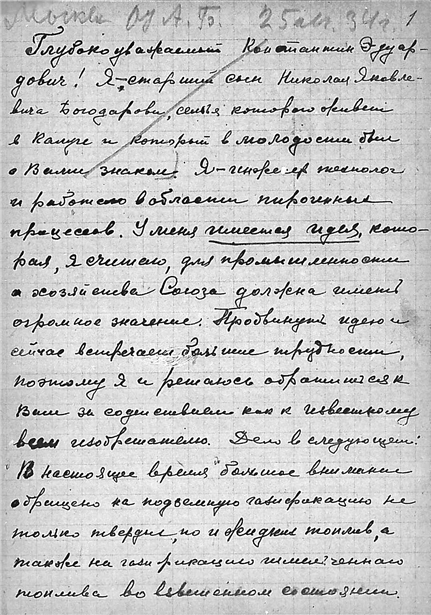 Москва А. Б. 25 авг. 34 г. 1
Глубокоуважаемый Константин Эдуар-
дович! Я – старший сын Николая Яковле-
вича Богодарова, семья которого живет
в Калуге и который в молодости был
с Вами знаком. Я – инженер технолог
и работаю в области пирогенных
процессов. У меня имеется идея, кото-
рая, я считаю, для промышленности
и хозяйства Союза должна иметь
огромное значение. Продвинуть идею я
сейчас встречаем большие трудности,
поэтому я и решаюсь обратиться к
Вам за содействием как к известному
всем изобретателю. Дело в следующем:
В настоящее время большое внимание
обращено на подземную газификацию не
только твердых, но и жидких топлив, а
также на газификацию измельченного
топлива во взвешенном состоянии.